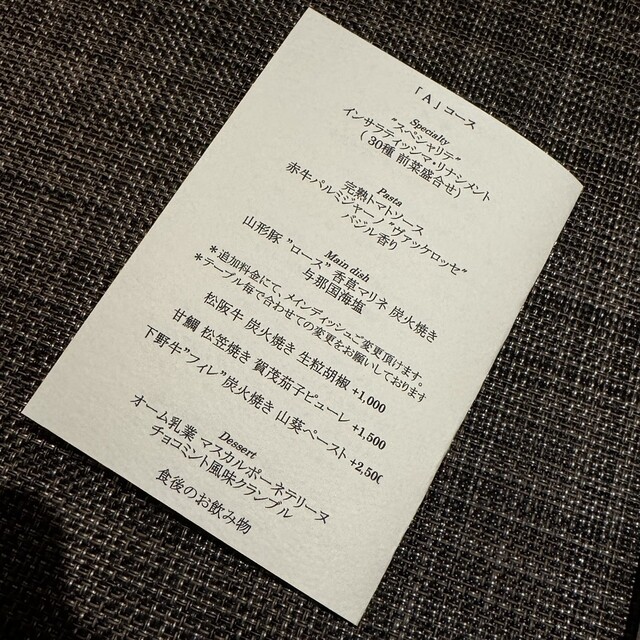 「A」コース
Specialty
"スペシャリテ"
インサラティッシマ・リナシメント
(30種 前菜盛合せ)
Pasta
完熟トマトソース
赤牛パルミジャーノ"ヴァッケロッセ"
バジル香り
Main dish
山形豚 "ロース" 香草マリネ 炭火焼き
与那国海塩
*追加料金にて、メインディッシュご変更頂けます。
*テーブル毎で合わせての変更をお願いしております
松阪牛 炭火焼き 生粒胡椒 +1,000
甘鯛 松笠焼き 賀茂茄子ピューレ +1,500
下野牛"フィレ" 炭火焼き 山葵ペースト +2,500
Dessert
オーム乳業 マスカルポーネテリーヌ
チョコミント風味クランブル
食後のお飲み物